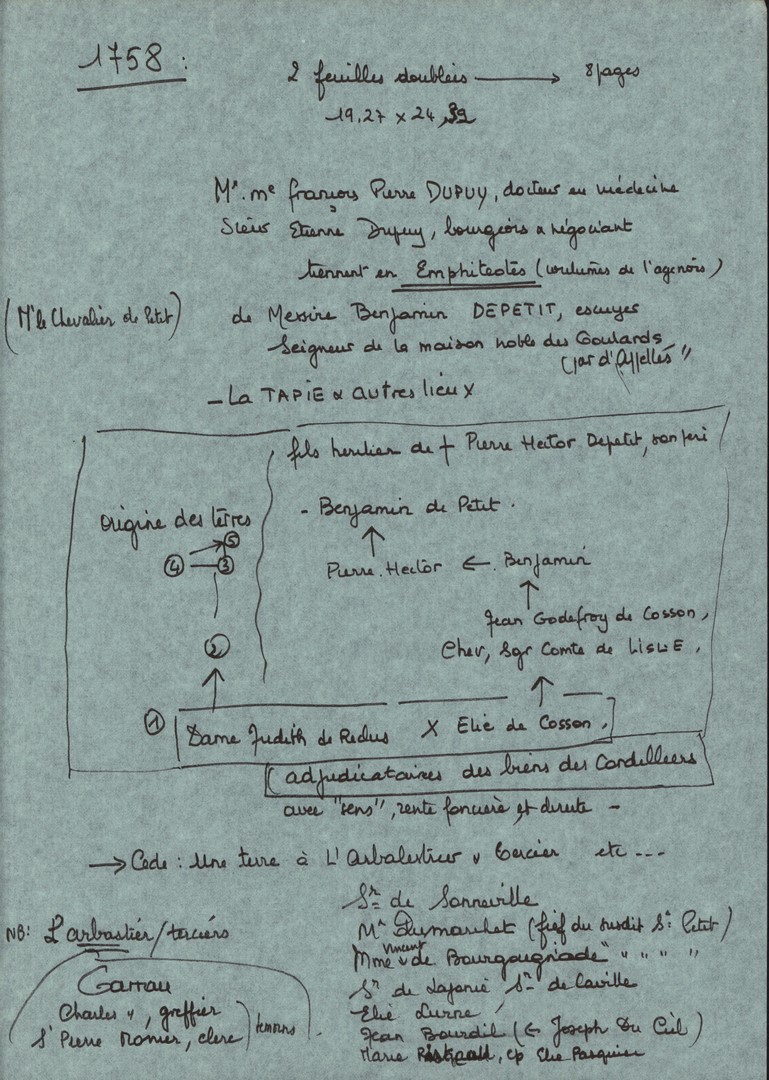 1758 :
2 feuilles doubles → 8 pages
19,27 x 24,39
Mr. me françois Pierre DUPUY, docteur en médecine
Sieur Etienne Dupuy, bourgeois & négociant
tiennent en Emphiteotes (coutumes de l'agenois)
(Mr le Chevalier de Petit)
de Messire Benjamin DEPETIT, escuyer
Seigneur de la maison noble des Goulards
- La TAPIE & autres lieux
fils heritier de † Pierre Hector Depetit, son peri
- Benjamin de Petit.
origine des terres
⑤
④ — ③
Pierre. Hector ← Benjamin
Jean Godefroy de Cosson,
②
Chev, Sgr Comte de LISLE,
① Dame Judith de Redus X Elie de Cosson,
(adjudicataires des biens des Cordelleers
avec "sens", rente foncière et directe -
→ Cede : Une terre à L'Arbalestrier & Tercier etc ---
Sr de Sonneville
NB: L'arbastier/terciers
Mr Dumarchet (fief du susdit Sr Petit)
Mme de Bourgougniade " " " "
Garrau
Sr de Lajonie Sr de Laville
Charles ", greffier
Elie Lurne
S' Pierre Monier, clerc
temoins
Jean Bourdil (← Joseph Du Ciel)
Marie, ep Elie Pasquier